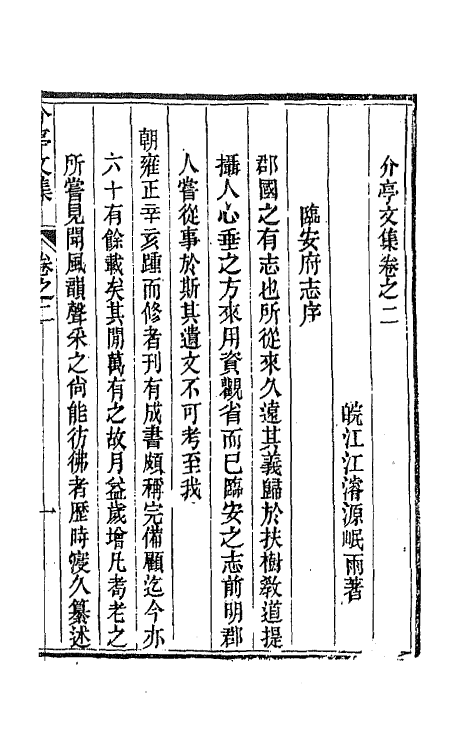 介亭文集卷之二
皖江江濬源岷雨著
臨安府志序
郡國之有志也所從來久遠其義歸於扶樹教道提
攝人心垂之方來用資觀省而已臨安之志前明郡
人嘗從事於斯其遺文不可考至我
朝雍正辛亥踵而修者刊有成書頗稱完備顧迄今亦
六十有餘載矣其間萬有之故月益歲增凡耆老之
所嘗見聞風韻聲采之尙能彷彿者歷時寖久纂述
介亭文集
卷之二
一